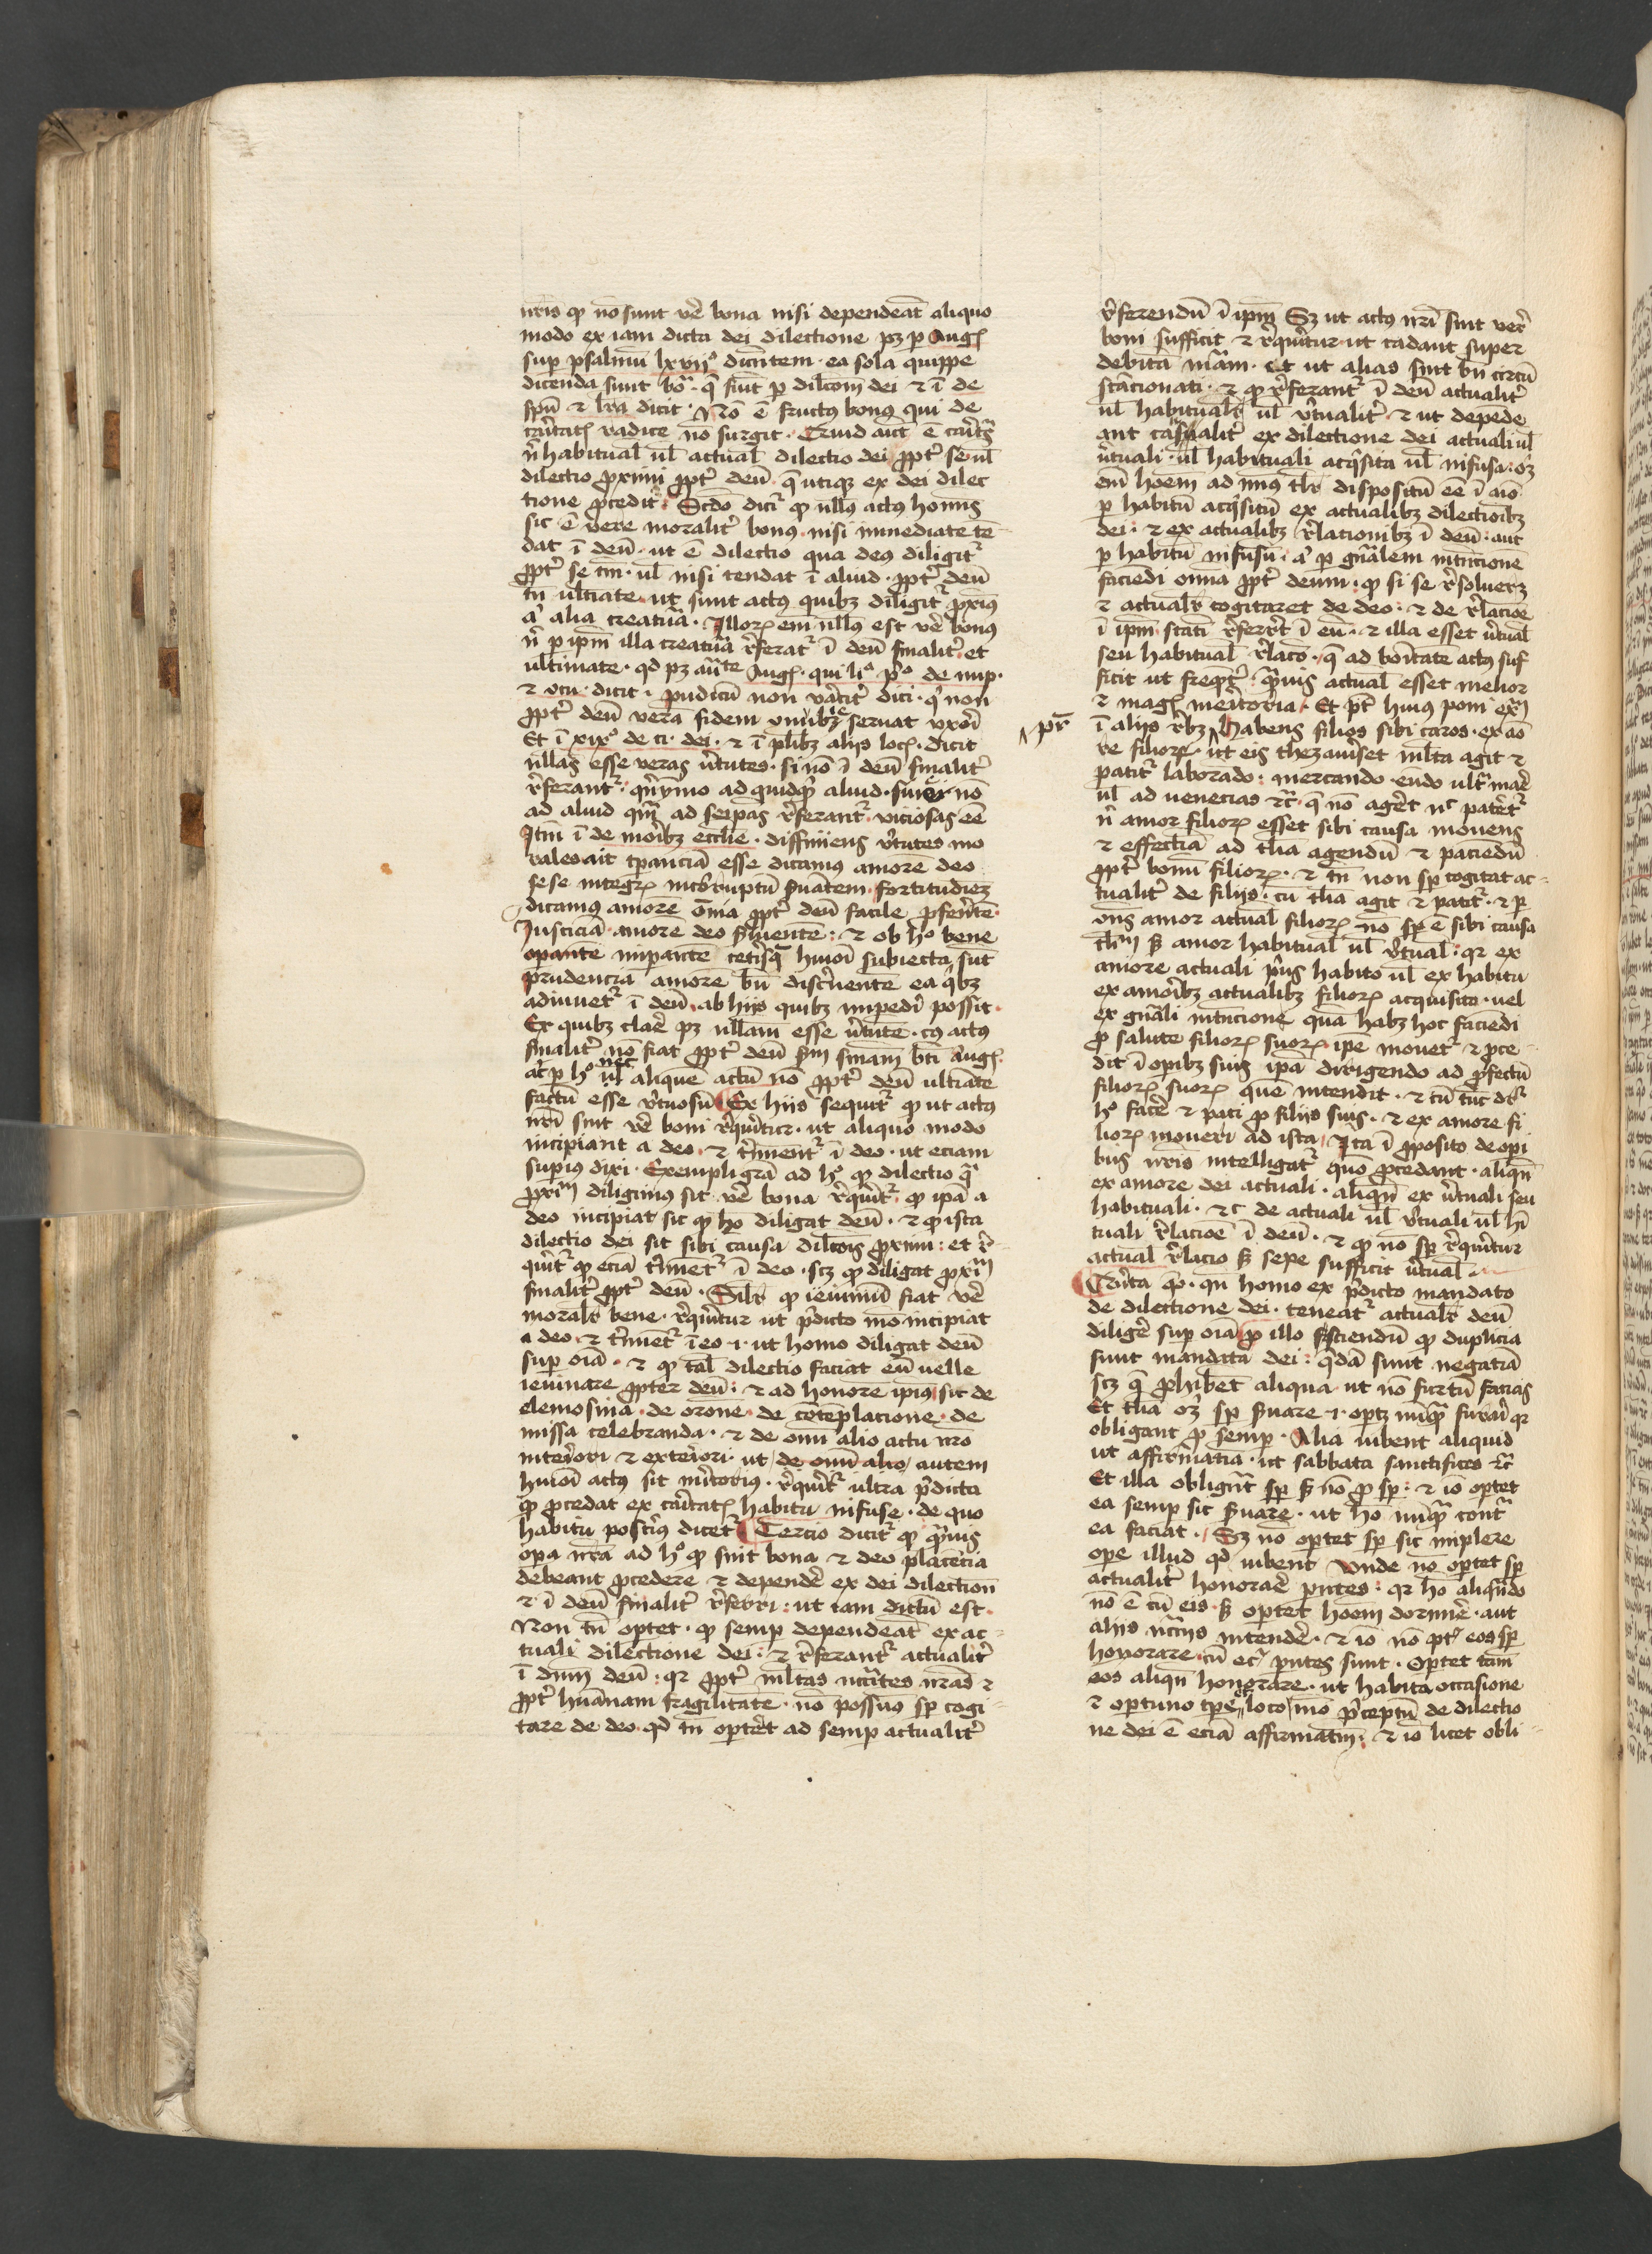 nr̄is qꝫ nō sunt vē bona nisi dependeāt aliquo
modo ex iam dicta dei dilectione pꝫ ꝑ Augꝭ
suꝑ psalmū lxvijº dicentem · ea sola quippe
dicenda sunt bōa · q̄ fiūt ꝑ dilc̄om dei ⁊ ī de
spū ⁊ lr̄a dicit · Nō ē fructus bonus qui de
cāritatꝭ radice nō surgit · Quid aūt ē cāritas
n̄ habitual̄ ul̄ actual̄ dilectio dei ꝓpt̄ se ul̄
dilectio proximi ꝓpt̄ deū · q̄ utiqꝫ ex dei dilec
tione procedit · Scd̄o dicit̄ qꝫ nullꝰ actꝰ homīs
sic ē vere moralit̄ bonꝰ · nisi inmediate tē
dat ī deū · ut ē dilectio qua deus diligit̄
ꝓpt̄ se tm̄ · ul̄ nisi tendat ī aliud · ꝓpt̄ deū
tn̄ ultīate · ut sunt actꝰ quibꝫ diligit̄ ꝓxīꝰ
a̓ alia creatura · Illoꝝ em̄ nullꝰ est vē bonꝰ
n̄ ꝑ ipm̄ illa creatura r̄ferat̄ ī deū finalit̄ et
ultimate · qd̓ pꝫ aūte Augꝭ · qui liº pº de nup·
⁊ ꝯcu · dicit · pudicū non vāciter dici · q̓ non
ꝓpt̄ deū verā fidem ꝯnubꝫ seruat vxori
Et ī xixº de ci · dei · ⁊ ī pl̄ibꝫ aliis locꝭ · dicit
nullas esse veras v̄tutes · si nō ī deū finalit̄
r̄ferant̄ · qn̄ymo ad quidqꝫ aliud · si nō
ad aliud qm̄ ad seip̄as r̄ferant̄ · viciosas eē
Itm̄ ī de moribꝫ eccl̄ie · diffiniens v̄tutes mo
rales ait tꝑanciā esse dicamus amorē deo
sese integrꝭ incorruptū s̄uantem · fortitudiēꝫ
dicamus amore ōnia ꝓpt̄ deū facile ꝑferētē·
Iusticiā amorē deo s̄uientē : ⁊ ob hº bene
oꝑantē imꝑantē cet̄isqꝫ huiōi subiecta sūt
prudencia amorē bn̄ discernentē ea q̓bꝫ
adiuuet̄ ī deū · ab hiis quibꝫ impedī possit·
Ex quibꝫ clare pꝫ nullam esse v̄tutē · cꝰ actꝰ
finalit̄ nō fiat ꝓpt̄ deū s̄m sn̄iam bt̄i Augꝭ·
ac̄ ꝑ hº nec ul̄ aliquē actū nō ꝓpt̄ deū ultiāte
factū esse v̄tuosū Ex hiis sequit̄ qꝫ ut actꝰ
nr̄i sint vē boni r̄quirit̄ · ut aliquo modo
incipiant a deo · ⁊ t̄minent̄ ī deo · ut eciam
suꝑius dixi · Exempli grā ad hº qꝫ dilectio q̄
ꝓxīm diligimus sit vē bona r̄quirit̄ · qꝫ ipā a
deo incipiat sic qꝫ hō diligat deū · ⁊ qꝫ ista
dilectio dei sit sibi causa dilc̄ois proximi : et r̄
quirit̄ qꝫ eciā t̄minet̄ ī deo · scꝫ qꝫ diligat ꝓxīm
finalit̄ ꝓpt̄ deū · Silr̄ qꝫ ieiuniū fiat vē
moralr̄ bene · r̄quiritur ut p̄dicto mō incipiat
a deo · ⁊ t̄minet̄ ī eo ·i· ut homo diligat deū
suꝑ oīa · ⁊ qꝫ tal̄ dilectio faciat eū uelle
ieiunare ꝓpter deū : ⁊ ad honorē ipius · sic de
elemosina · de orōne · de cōtēplacione · de
missa celebranda · ⁊ de omni alio actu nr̄o
interiori ⁊ exteriori · ut de omni alio autem
huiōi actꝰ sit mitorius · r̄quirit̄ ultra p̄dicta
qꝫ procedat ex cāritatꝭ habitu infuse · de quo
habitu postius dicet̄ Tercio dicit̄ qꝫ qm̄uis
oꝑa nr̄a ad hº qꝫ sint bona ⁊ deo placēcia
debeant procedere ⁊ depende ex dei dilection̄
⁊ ī deū finalit̄ r̄ferri : ut iam dictū est·
Non tn̄ optet · qꝫ semꝑ dependeāt ex ac-
tuali dilectione dei : ⁊ r̄ferant̄ actualit̄
ī dnm̄ deū : qꝛ ꝓpt̄ ml̄tas nc̄citates nr̄as ⁊
ꝓpt̄ humanam fragilitatē · nō possumꝰ sꝑ cogi-
tare de deo · qd̓ tn̄ oporteret ad semꝑ actualit̄
r̄ferendū ī ipm̄ Sꝫ ut actꝰ nr̄i sint verē
boni sufficit ⁊ r̄quiritur ut cadant super
debitā mām · Et ut alias sint bn̄ circū
stācionati · ⁊ qꝫ r̄ferant̄ ī deū actualit̄
ul̄ habitualr̄ ul̄ v̄tualit̄ · ⁊ ut depede
ant casualit̄ ex dilectione dei actuali ul̄
v̄tuali · ul̄ habituali acq̓sita ul̄ infusa · oꝫ
em̄ hoēm ad minꝰ tl̄r dispositū eē ī aīo
ꝑ habitū acq̓sitū ex actualibꝫ dilectioībꝫ
dei : ⁊ ex actualibꝫ r̄lacionibꝫ ī deū : aut
ꝑ habitū infusū · a̓ ꝑ gn̄alem intencionē
faciēdi omnia ꝓpt̄ deum · qꝫ si se r̄solueret
⁊ actualr̄ cogitaret de deo : ⁊ de r̄lacioē
ī ipm̄ · statī r̄ferret ī eū · ⁊ illa esset v̄tual̄
seu habitual̄ r̄lacō · q̄ ad bonitatē actꝰ suf
ficit ut freq̄nt̄ · qm̄uis actual̄ esset melior
⁊ magꝭ meritoria · Et pt̄ huius poni exm̄
pꝛ̄
ī aliis r̄bꝫ habens filios sibi caros · ex aō
re filioꝝ · ut eis thezaurizet ml̄ta agit ⁊
patit̄ laborādo : mercando · eūdo ult̄ mare
ul̄ ad venecias ⁊c̄ · q̄ nō ageret nꝰ patet̄
n̄ amor filioꝝ esset sibi causa mouens
⁊ effectiua ad tl̄ia agendū ⁊ paciēdū
ꝓpt̄ bonū filioꝝ · ⁊ tn̄ non sꝑ cogitat ac-
tualit̄ de filiis · cū tl̄ia agit ⁊ patit̄ · ⁊ ꝑ
ꝯns amor actual̄ filioꝝ nō sꝑ ē sibi causa
tl̄m s̄ amor habitual̄ ul̄ v̄tual̄ · qꝛ ex
amore actuali p̓us habito ul̄ ex habitu
ex amoribꝫ actualibꝫ filioꝝ acquisito · uel
ex gn̄ali intencione quā habꝫ hoc faciēdi
ꝓ salute filioꝝ suoꝝ · ipē mouet̄ ⁊ ꝓce-
dit ī oꝑibꝫ suis ipā dirigendo ad profectū
filioꝝ suoꝝ quē intendit · ⁊ tū tūc dr̄
hº face ⁊ pati ꝓ filiis suis · ⁊ ex amore fi
lioꝝ moueri ad ista · Ita ī ꝓposito de oꝑi
bus nr̄is intelligat̄ quō procedant · aliqn̄
ex amore dei actuali · aliqn̄ ex v̄tuali seu
habituali · ⁊c de actuali ul̄ v̄tuali ul̄ hī
tuali r̄lacioē ī deū · ⁊ qꝫ nō sꝑ r̄quiritur
actual̄ r̄lacio s̄ sepe sufficit v̄tual̄ ·
Quīta qō · qn̄ homo ex p̄dicto mandato
de dilectione dei · teneat̄ actualr̄ deū
diligē suꝑ oīa ꝓ illo sciendū qꝫ duplicia
sunt mandata dei : q̄dā sunt negatiā
scꝫ q̄ prohibet aliqua ut nō furtū facias
Et tl̄ia oꝫ sꝑ s̄uare ·i· optꝫ nūqꝫ furari qꝛ
obligant ꝓ semꝑ · Alia iubent aliquid
ut affirmatiā · ut sabbata sanctifices ⁊c̄
Et illa obligant̄ sꝑ s̄ nō ꝓ sꝑ : ⁊ iō optet
ea semꝑ sic s̄uare · ut hō nūqꝫ cont̄
ea faciat · Sꝫ nō optet sꝑ sic implere
oꝑe illud qd̓ iubent Vnde nō optet sꝑ
actualit̄ honorare pntes : qꝛ hō aliqn̄do
nō ē cū eis · s̄ optet hoēm dormire · aut
aliis nc̄ciis intende · ⁊ iō nō pt̄ eos sꝑ
honorare · cū ec̄ pntes sunt · Optet tam̄
eos aliqn̄ honorare · ut habita occasione
⁊ oportuno tꝑe loco mō p̄ceptū de dilectio
ne dei ē eciā affirmatm̄ : ⁊ iō licet obli-